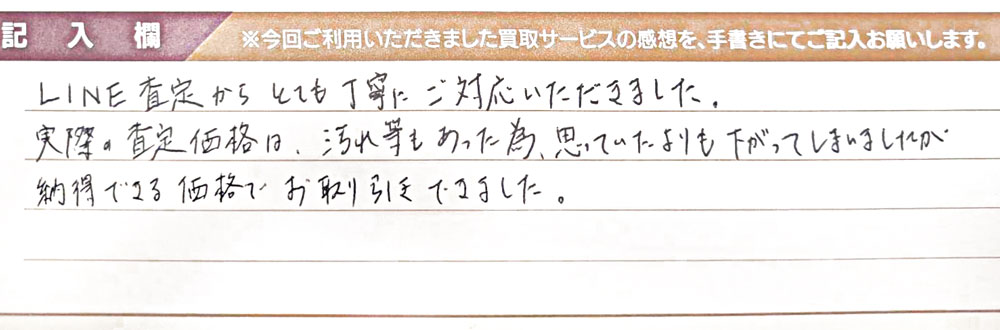 記入欄
※今回ご利用いただきました買取サービスの感想を、手書きにてご記入お願いします。
LINE査定からとても丁寧にご対応いただきました。
実際の査定価格は、汚れ等もあった為、思っていたよりも下がってしまいましたが
納得できる価格でお取り引きできました。